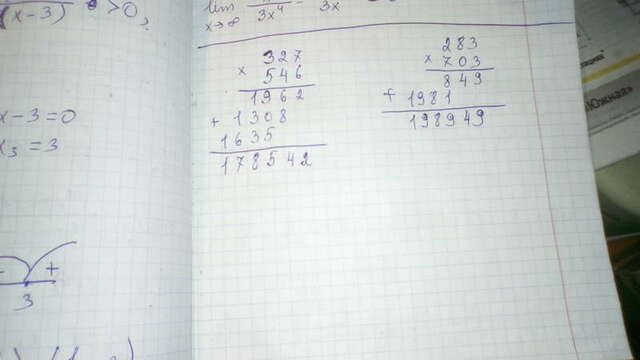 (x-3) > 0,
x - 3 = 0
x₃ = 3
- +
3
lim
x→∞
3x⁴ - 3x
327
× 546
1962
+ 1308
1635
178542
283
× 703
849
+ 1981
198949
Южная»